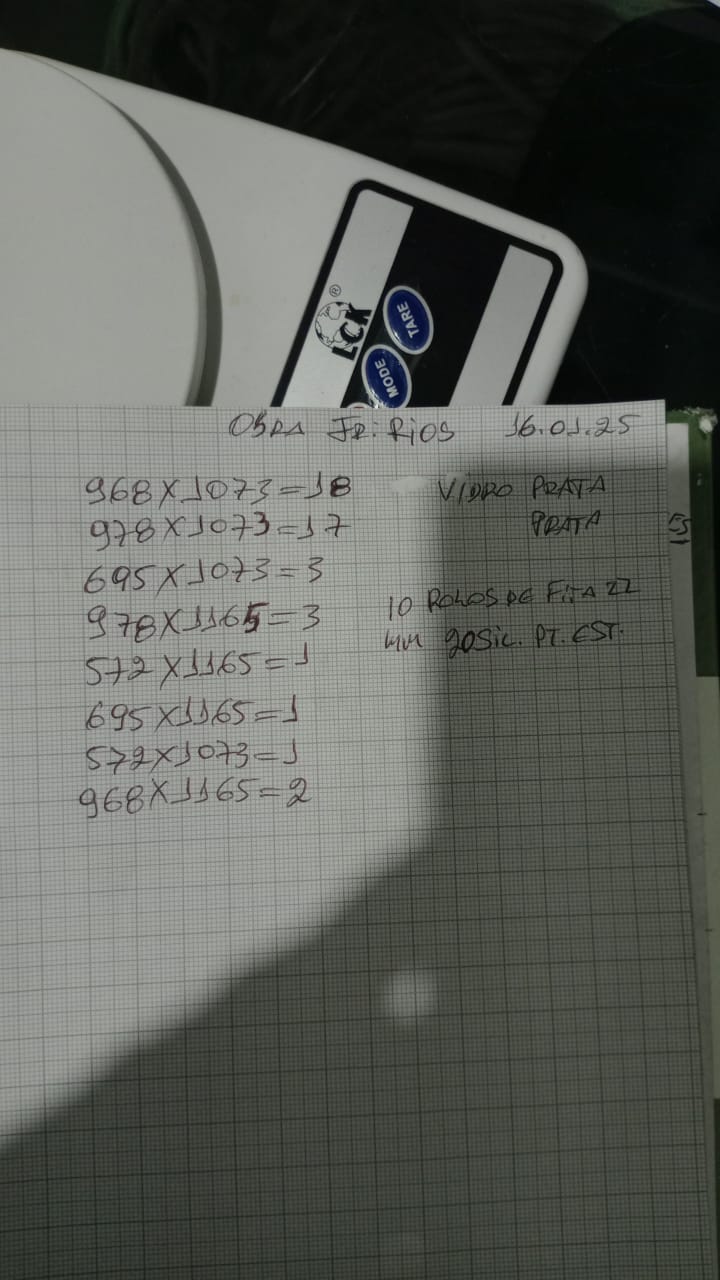 LCK®
TARE
MODE
OBRA JR: RIOS 16.01.25
968X1073=18 VIDRO PRATA
978X1073=17 PRATA
695X1073=3
978X1165=3 10 ROLOS DE FITA 22
572X1165=1 mm 20SIC. PT. EST.
695X1165=1
572X1073=1
968X1165=2